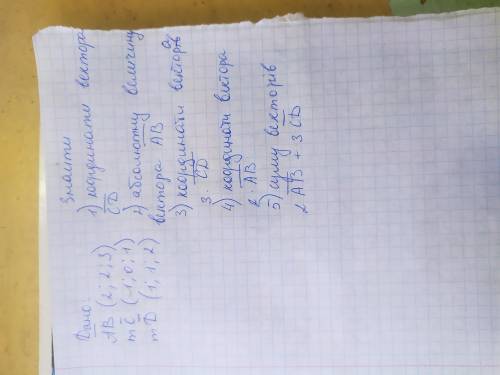 Дано:
AB (2; 2; 3)
т C (-1; 0; 1)
т D (1; 1; 2)
Знайти
1) координати вектора
CD
2) абсолютну величину
вектора AB
3) координати вектора
3 · CD
4) координати вектора
2 · AB
5) суму векторів
2 AB + 3 CD